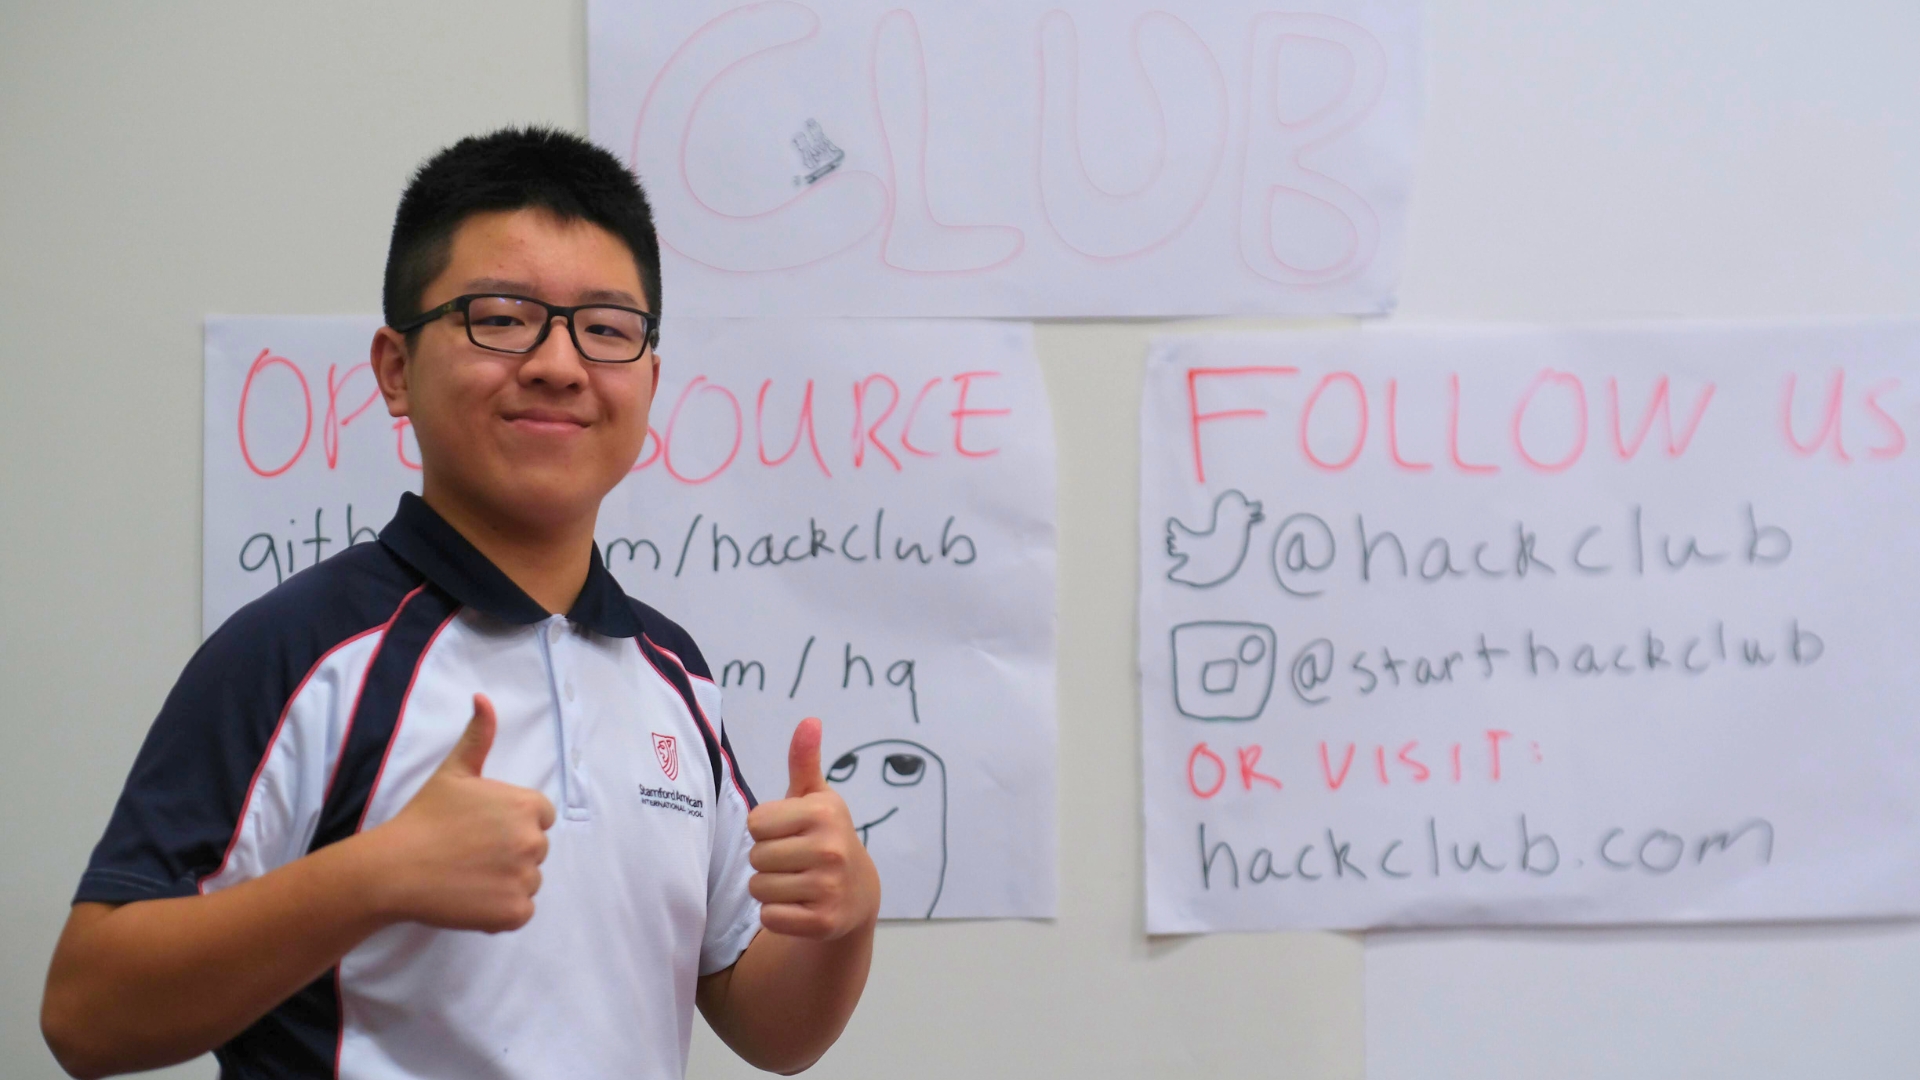 CLUB
OPE SOURCE
gith m/hackclub
m/hq
FOLLOW US
@hackclub
@starthackclub
OR VISIT:
hackclub.com
Stamford American
INTERNATIONAL